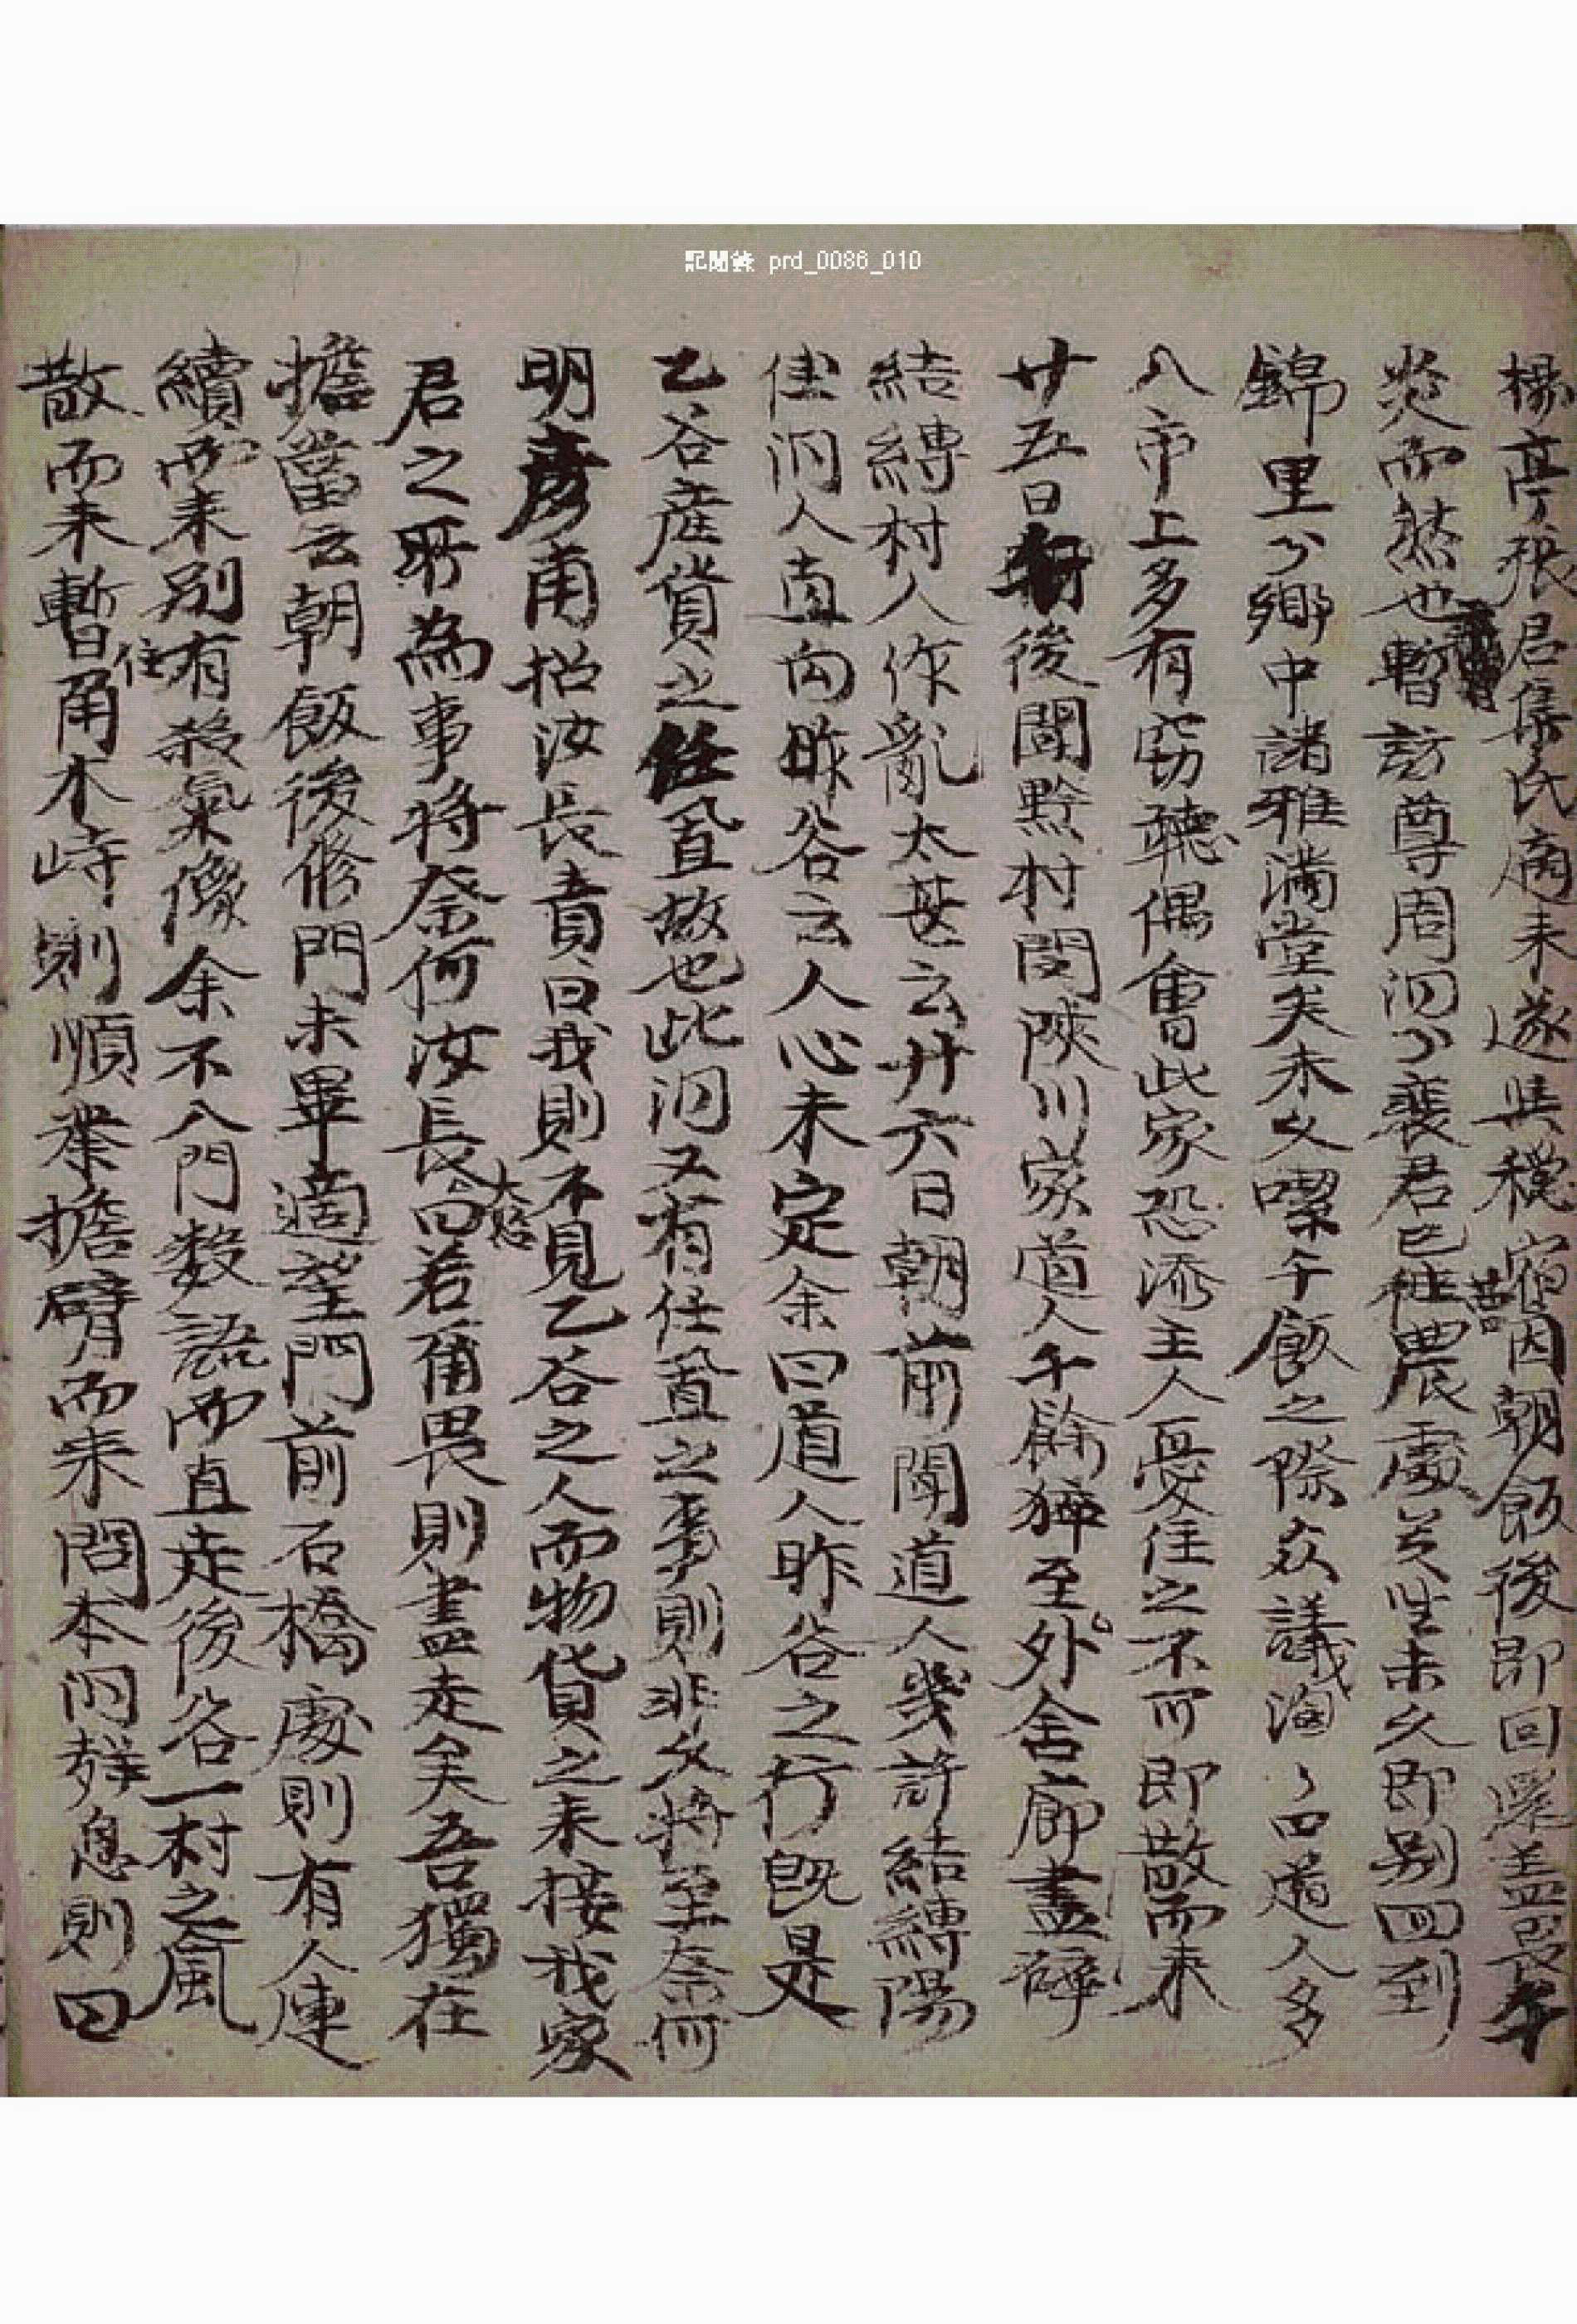 記聞錄 prd_0086_010
楊亭張君集氏適來遂與穩宿因朝飯後即回還盖畏午
炎而然也暫訪尊周洞丁裵君已往農處 苦待 坐未久即別回到
錦里丁鄉中諸雅滿堂矣未久喫午飯之際衆議洶丶曰道人多
入市上多有窃聽偶會此家恐添主人憂住之不可即散而來
廿五日 後聞黔村閔陜川家道人千餘猝至外舍廊盡碎
結縛村人作亂太甚云廿六日朝前聞道人幾許結縛陽
佳洞人直向昨谷云人心未定余曰道人昨谷之行旣是
乙谷産貨之任置故也此洞又有任置之事則非久將至奈何
明彦甫招汝長大怒責曰我則不見乙谷之人而物貨之来接我家
君之所為事將奈何汝長曰若甭畏則盡走矣吾獨在
擔當云朝飯後修門未畢適望門前石橋處則有人連
續而来別有殺氣像余不入門數語而直走後谷一村之風
散而来暫住甬木峙則順業擔臂而来問本洞聲息則曰